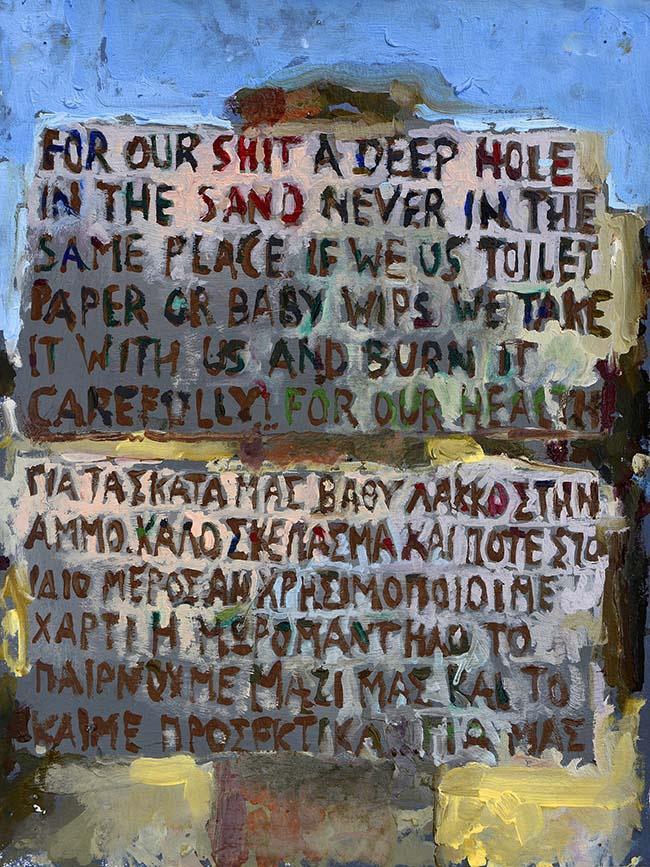 FOR OUR SHIT A DEEP HOLE
IN THE SAND NEVER IN THE
SAME PLACE. IF WE US TOILET
PAPER OR BABY WIPS WE TAKE
IT WITH US AND BURN IT
CAREFULLY! FOR OUR HEALTH
ΓΙΑ ΤΑ ΣΚΑΤΑ ΜΑΣ ΒΑΘΥ ΛΑΚΚΟ ΣΤΗΝ
ΑΜΜΟ. ΚΑΛΟ ΣΚΕΠΑΣΜΑ ΚΑΙ ΠΟΤΕ ΣΤΟ
ΙΔΙΟ ΜΕΡΟΣ ΑΝ ΧΡΗΣΙΜΟΠΟΙΟΙΜΕ
ΧΑΡΤΙ Η ΜΩΡΟΜΑΝΤΗΛΟ ΤΟ
ΠΑΙΡΝΟΥΜΕ ΜΑΖΙ ΜΑΣ ΚΑΙ ΤΟ
ΚΑΙΜΕ ΠΡΟΣΕΚΤΙΚΑ.. ΓΙΑ ΜΑΣ